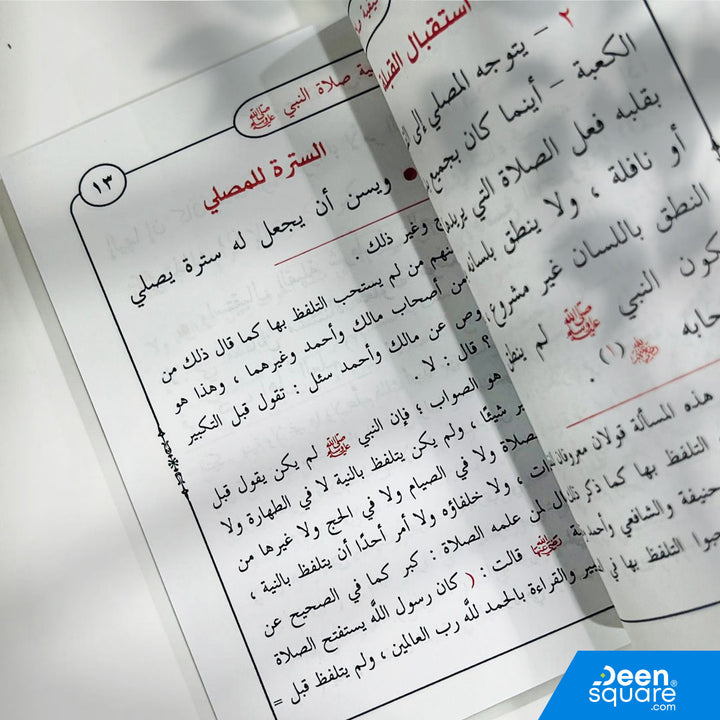 استقبال القبلة
٢ – يتوجه المصلي إلى
الكعبة – أينما كان بجميع
بقلبه فعل الصلاة التي يريد
أو نافلة ، ولا ينطق بلسانه
النطق باللسان غير مشروع
النبي ﷺ لم
(١) .
هذه المسألة قولان معروفان
التلفظ بها كما ذكر ذلك
حنيفة والشافعي وأحمد
التلفظ بها في
صلاة النبي ﷺ
١٣
السترة للمصلي
• ويسن أن يجعل له سترة يصلي
وغير ذلك .
من لم يستحب التلفظ بها كما قال ذلك من
من أصحاب مالك وأحمد وغيرهما ، وهذا هو
عن مالك وأحمد سئل : تقول قبل التكبير
؟ قال : لا .
هو الصواب ؛ فإن النبي ﷺ لم يكن يقول قبل
شيئًا ، ولم يكن يتلفظ بالنية لا في الطهارة ولا
الصلاة ولا في الصيام ولا في الحج ولا غيرها من
، ولا خلفاؤه ولا أمر أحدًا أن يتلفظ بالنية ،
لمن علمه الصلاة : كبر كما في الصحيح عن
قالت : ( كان رسول اللَّه يستفتح الصلاة
والقراءة بالحمد للَّه رب العالمين ، ولم يتلفظ قبل =
Deen
square®
.com